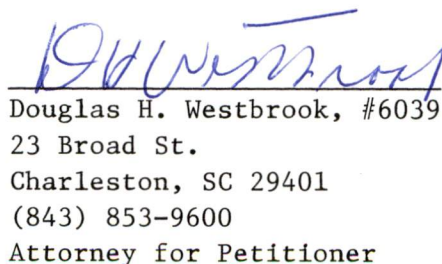 DHWestbrook
Douglas H. Westbrook, #6039
23 Broad St.
Charleston, SC 29401
(843) 853-9600
Attorney for Petitioner